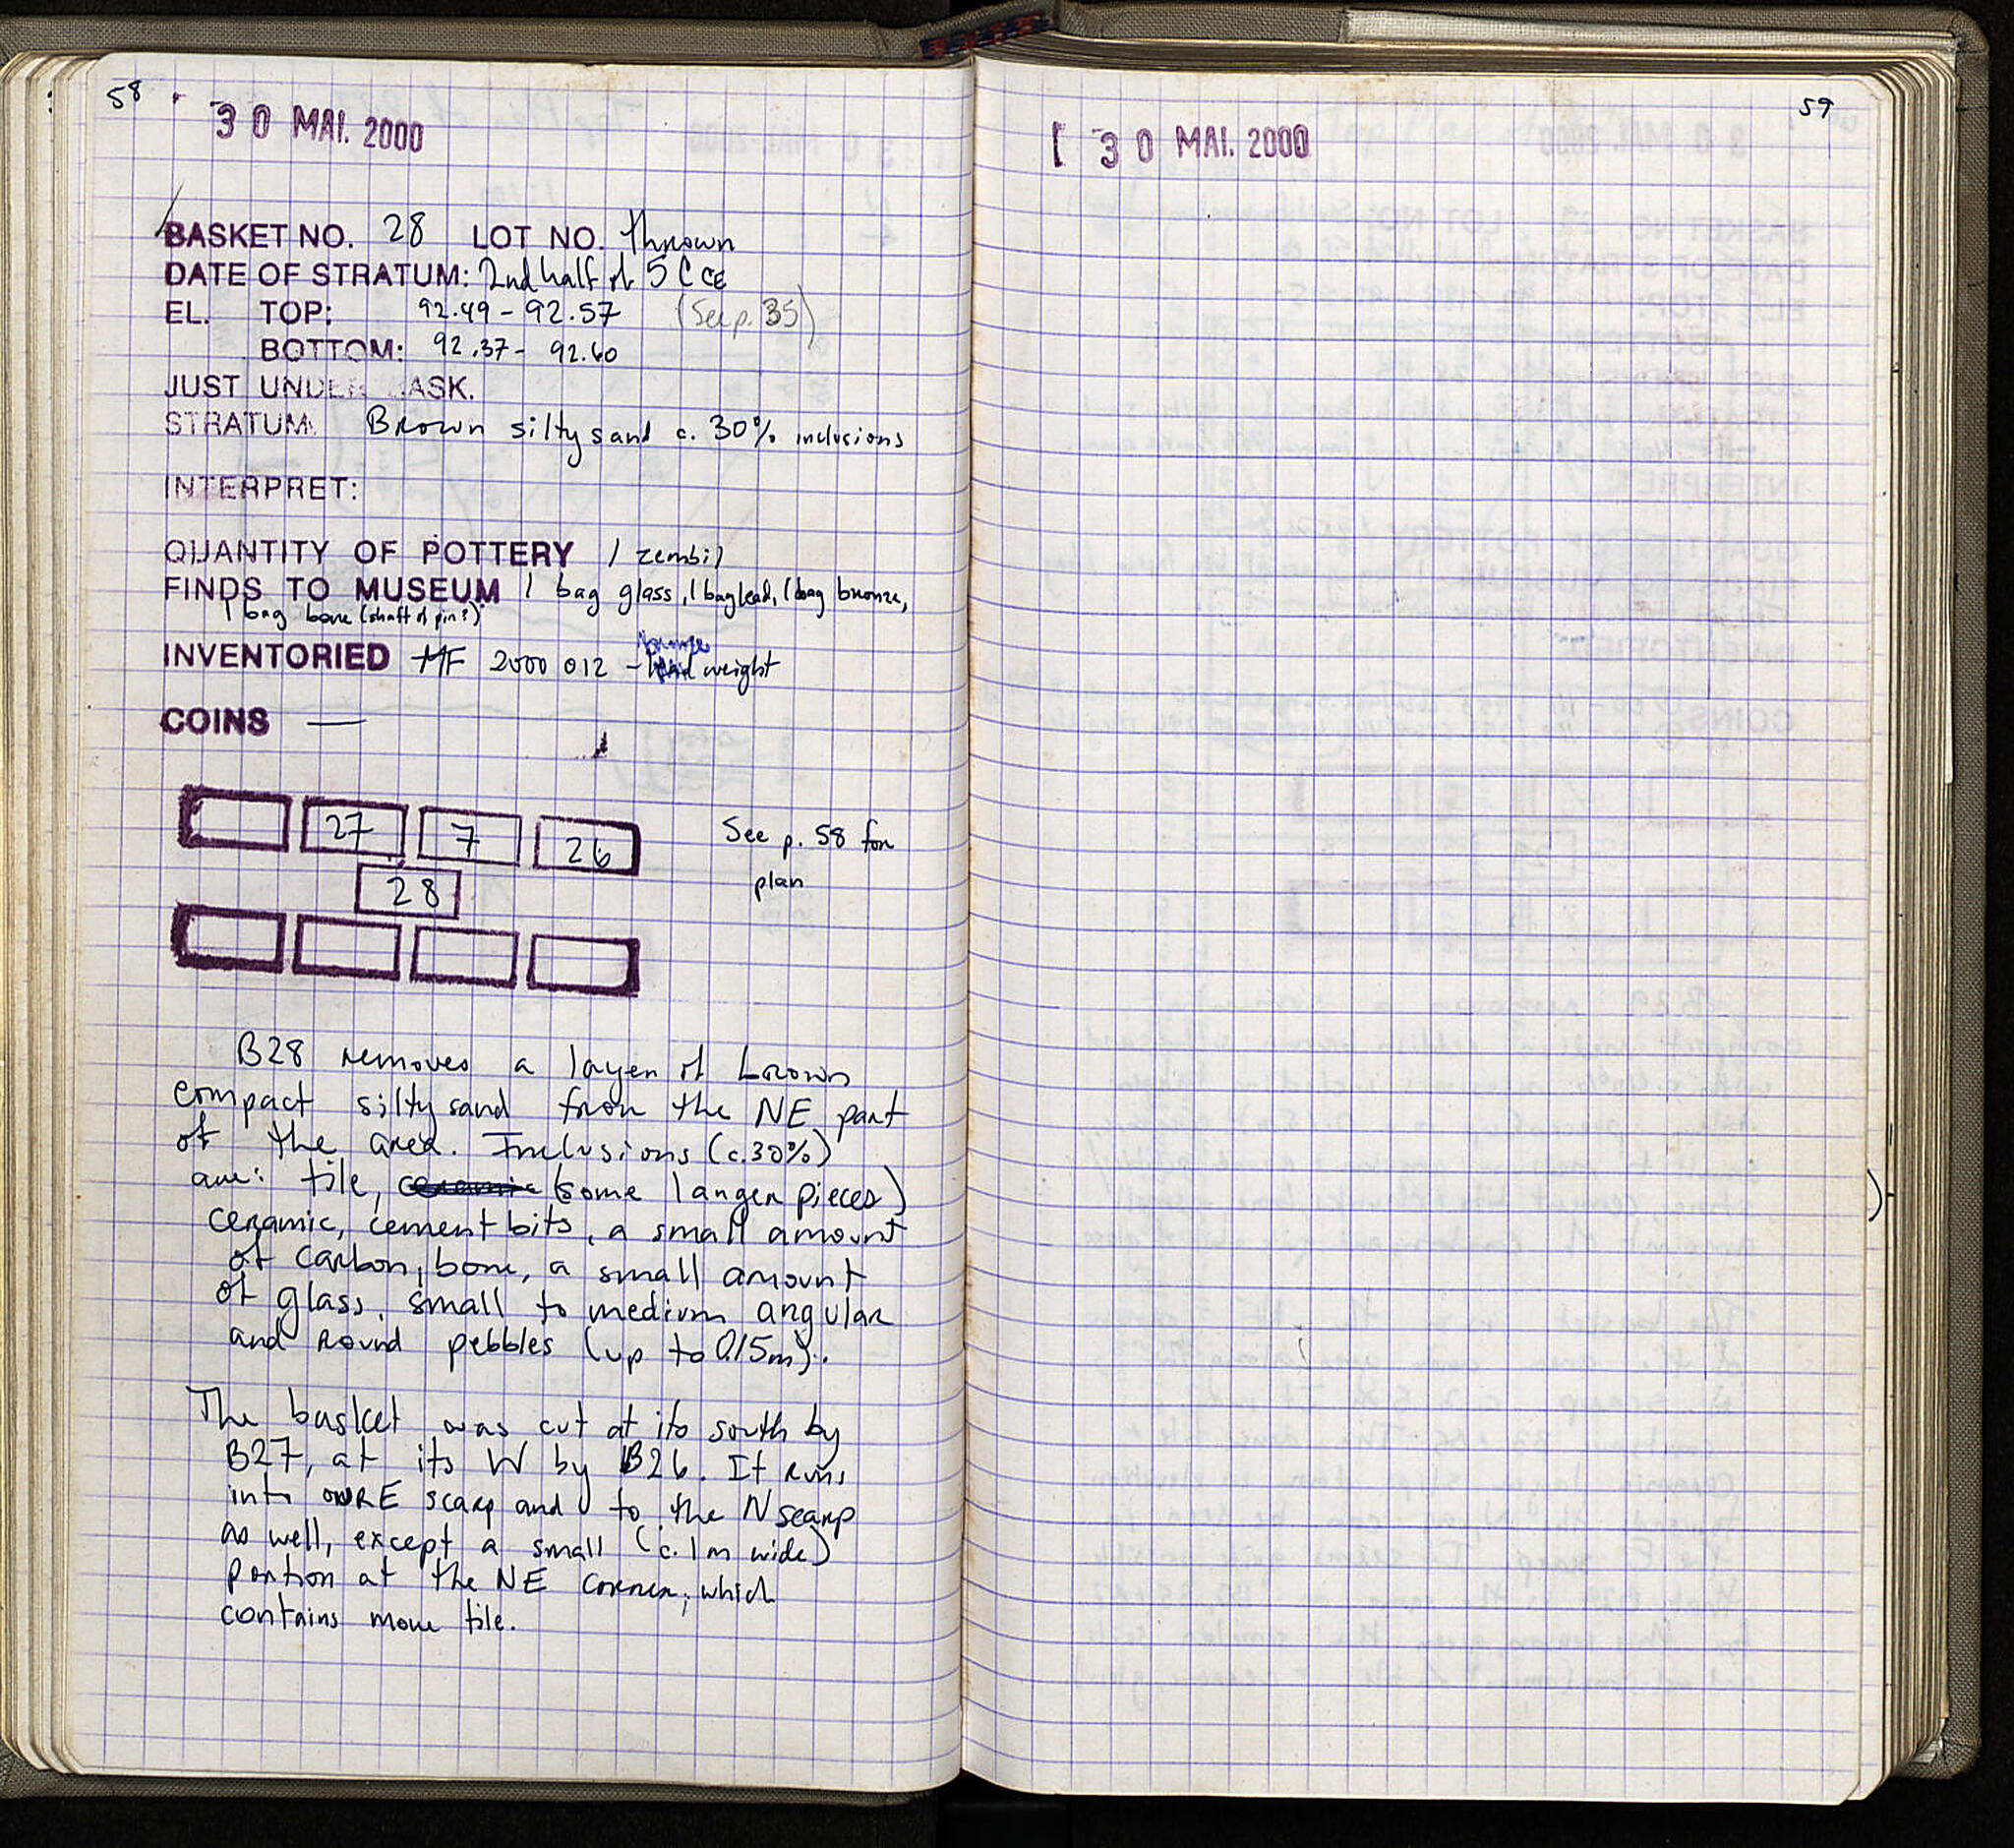 58
30 MAI. 2000
BASKET NO. 28 LOT NO. thrown
DATE OF STRATUM: 2nd half of 5 C CE
EL. TOP: 92.49 - 92.57 (See p. 35)
BOTTOM: 92.37 - 92.60
JUST UNDER BASK.
STRATUM: Brown silty sand c. 30% inclusions
INTERPRET:
QUANTITY OF POTTERY 1 zembil
FINDS TO MUSEUM 1 bag glass, 1 bag lead, 1 bag bronze,
1 bag bone (shaft of pin?)
bronze
INVENTORIED MF 2000 012 - lead weight
COINS —
27 7 26
28
See p. 58 for
plan
B28 removes a layer of brown
compact silty sand from the NE part
of the area. Inclusions (c.30%)
are: tile, ceramic (some larger pieces)
ceramic, cement bits, a small amount
of carbon, bone, a small amount
of glass, small to medium angular
and round pebbles (up to 0.15m).
The basket was cut at its south by
B27, at its W by B26. It runs
into our E scarp and to the N scarp
as well, except a small (c. 1m wide)
portion at the NE corner, which
contains more tile.
59
30 MAI. 2000